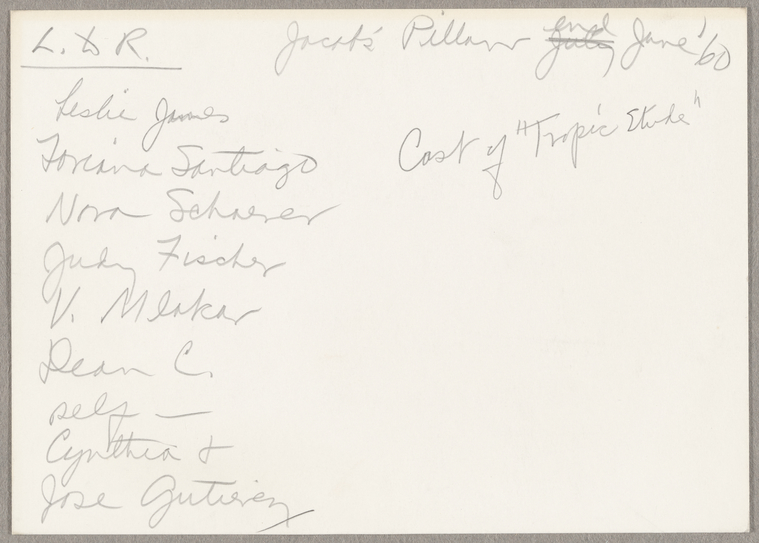 L. to R. Jacob's Pillow end June '60
Leslie James
Cast of "Tropic Etude"
Loriana Santiago
Nora Schaerer
Judy Fischer
V. Mlakar
Dean C.
self —
Cynthia &
Jose Gutierez